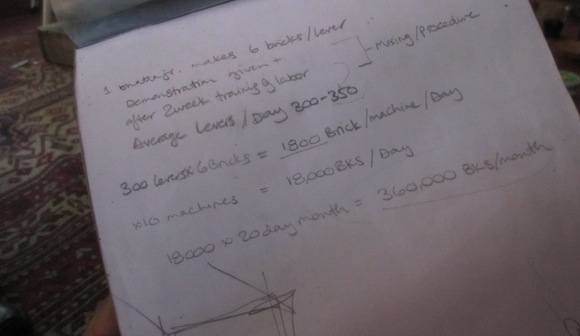 1 bhatta jr. makes 6 bricks/lever
Demonstration given +
after 2week training of labor
- Mixing/Procedure
Average Levers/Day 300-350
300 levers x 6 Bricks = 1800 Brick/machine/Day
x10 machines = 18,000 BKS/Day
18000 x 20 day month = 360,000 BKS/month